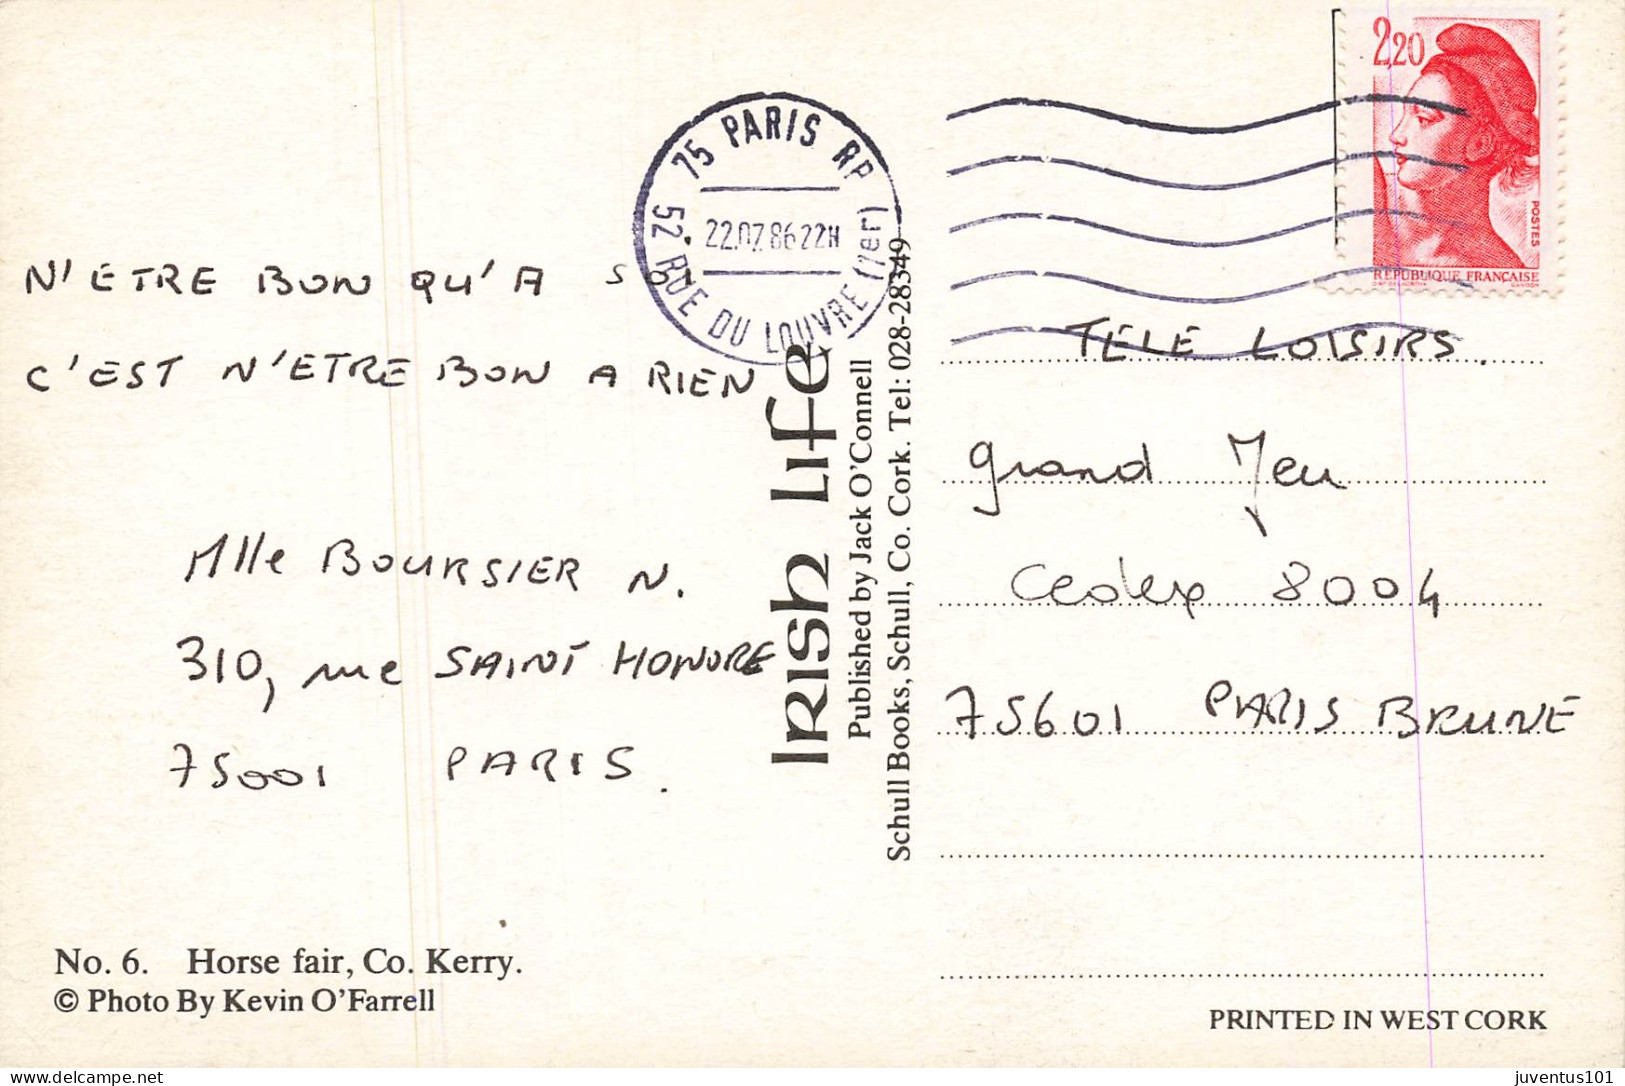 2,20
POSTES
RÉPUBLIQUE FRANÇAISE
75 PARIS RP
22.07.86 22H
52 RUE DU LOUVRE (1er)
N'ETRE BON QU'A SOI
C'EST N'ETRE BON A RIEN
Mlle BOURSIER N.
310, rue SAINT HONORE
75001 PARIS.
Irish Life
Published by Jack O'Connell
Schull Books, Schull, Co. Cork. Tel: 028-28349
TELE LOISIRS.
grand Jeu
Cedex 8004
75601 PARIS BRUNE
No. 6. Horse fair, Co. Kerry.
© Photo By Kevin O'Farrell
PRINTED IN WEST CORK
juventus101